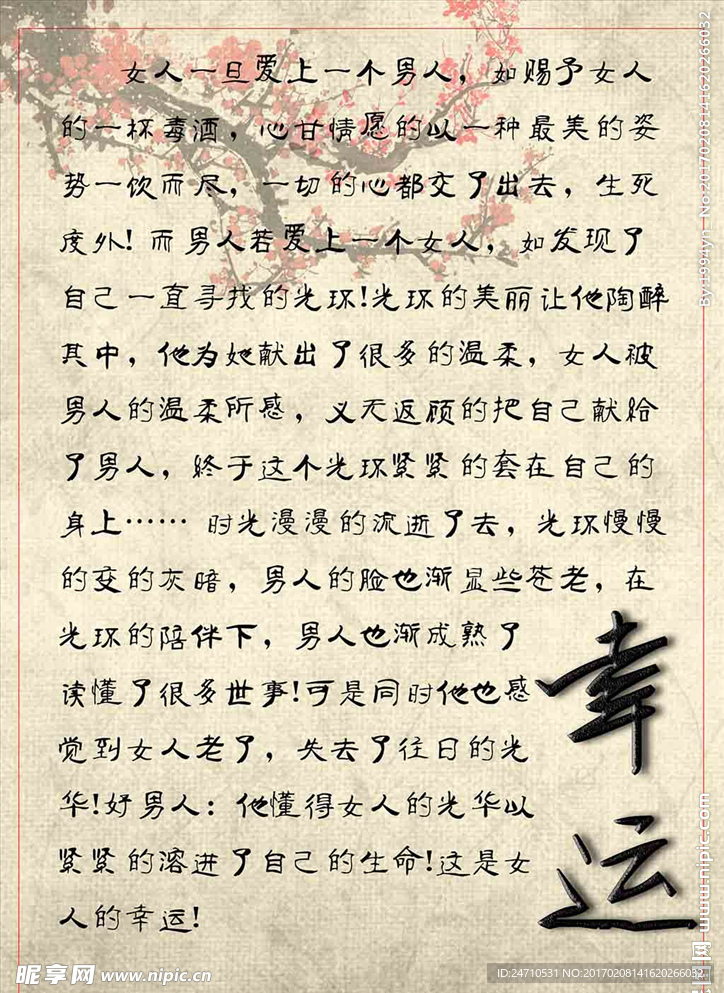 女人一旦爱上一个男人，如赐予女人
的一杯毒酒，心甘情愿的以一种最美的姿
势一饮而尽，一切的心都交了出去，生死
度外！而男人若爱上一个女人，如发现了
自己一直寻找的光环！光环的美丽让他陶醉
其中，他为她献出了很多的温柔，女人被
男人的温柔所感，义无返顾的把自己献给
了男人，终于这个光环紧紧的套在自己的
身上……时光漫漫的流逝了去，光环慢慢
的变的灰暗，男人的脸也渐显些苍老，在
光环的陪伴下，男人也渐成熟了
读懂了很多世事！可是同时他也感
觉到女人老了，失去了往日的光
华！好男人：他懂得女人的光华以
紧紧的溶进了自己的生命！这是女
人的幸运！
幸运
By:1994yh No:20170208141620266032
www.nipic.com
昵享网 www.nipic.cn
ID:24710531 NO:20170208141620266032